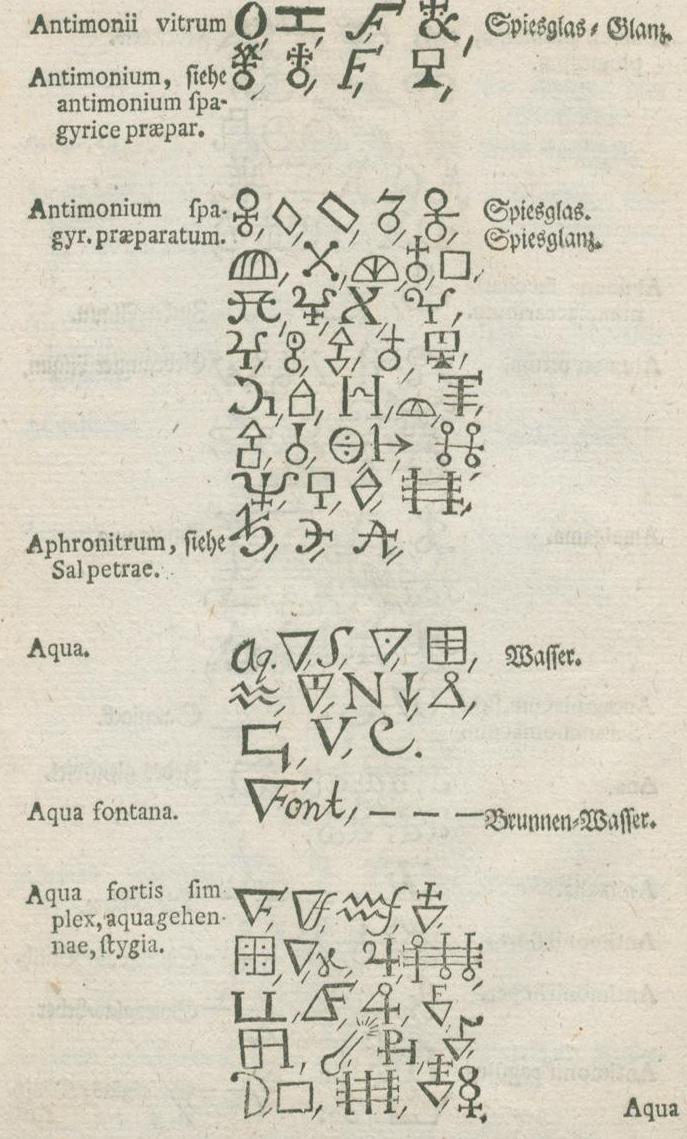 Antimonii vitrum Spiesglas-Glanz.
Antimonium, ſiehe
antimonium ſpa-
gyrice præpar.
Antimonium ſpa- Spiesglas.
gyr. præparatum. Spiesglanz.
Aphronitrum, ſiehe
Sal petrae.
Aqua. aq. Waſſer.
N
V, C.
Aqua fontana. Font, — — — Brunnen-Waſſer.
Aqua fortis ſim
plex, aqua gehen-
nae, ſtygia.
Aqua